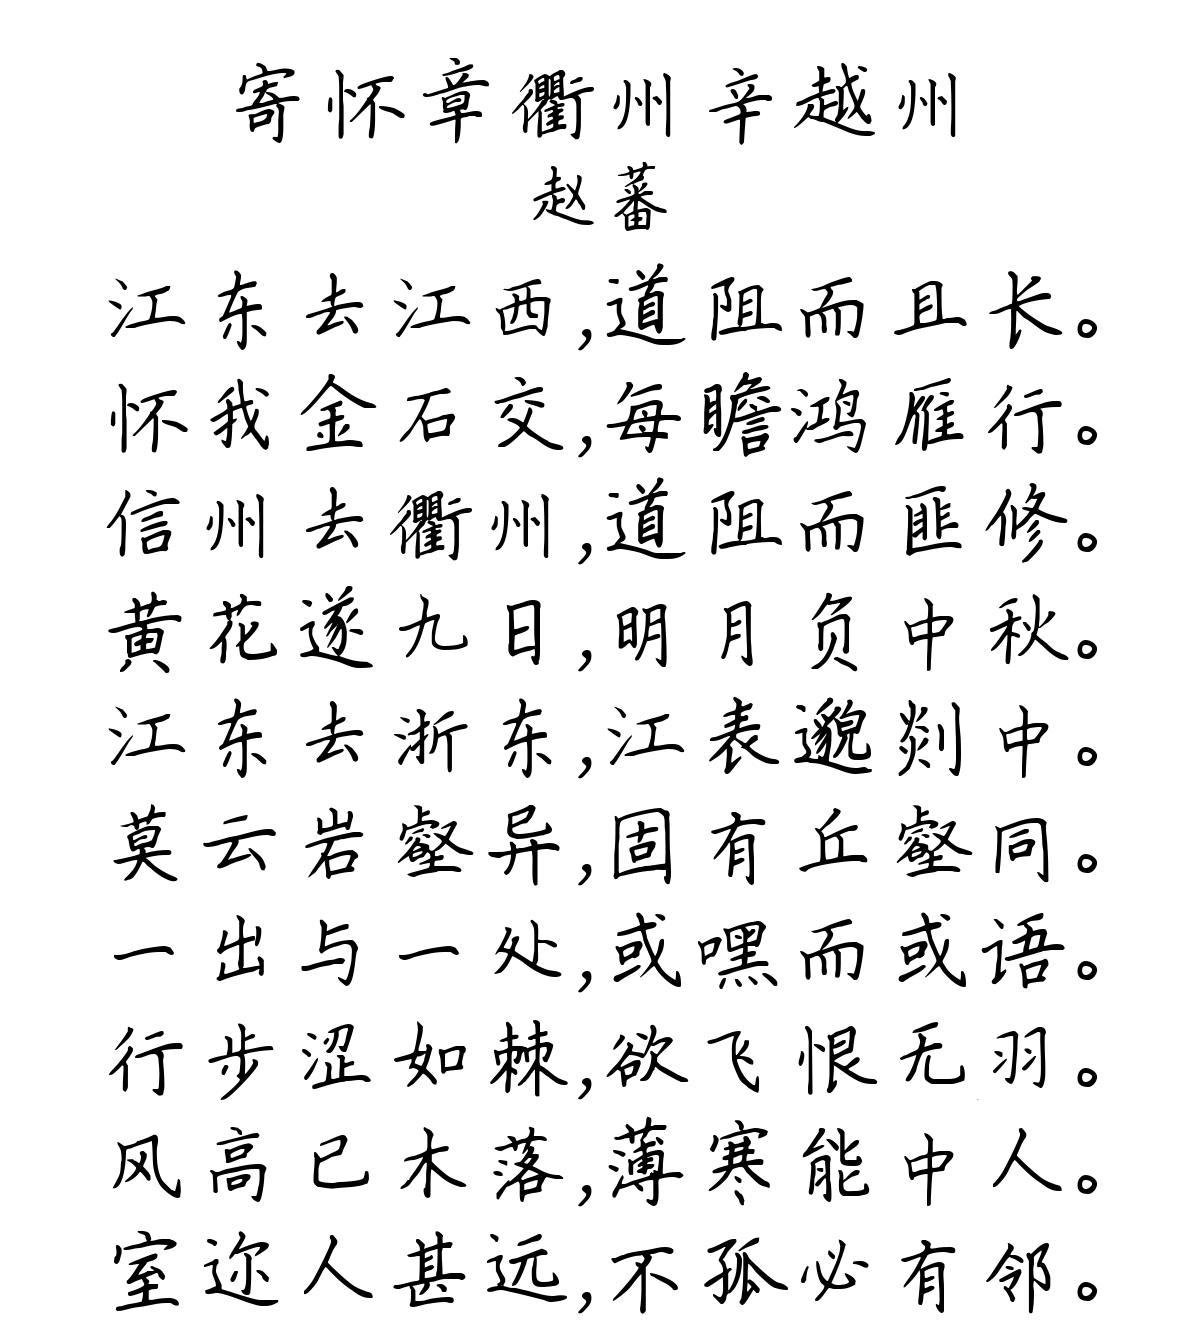 寄怀章衢州辛越州
赵蕃
江东去江西,道阻而且长。
怀我金石交,每瞻鸿雁行。
信州去衢州,道阻而匪修。
黄花遂九日,明月负中秋。
江东去浙东,江表邈剡中。
莫云岩壑异,固有丘壑同。
一出与一处,或嘿而或语。
行步涩如棘,欲飞恨无羽。
风高已木落,薄寒能中人。
室迩人甚远,不孤必有邻。